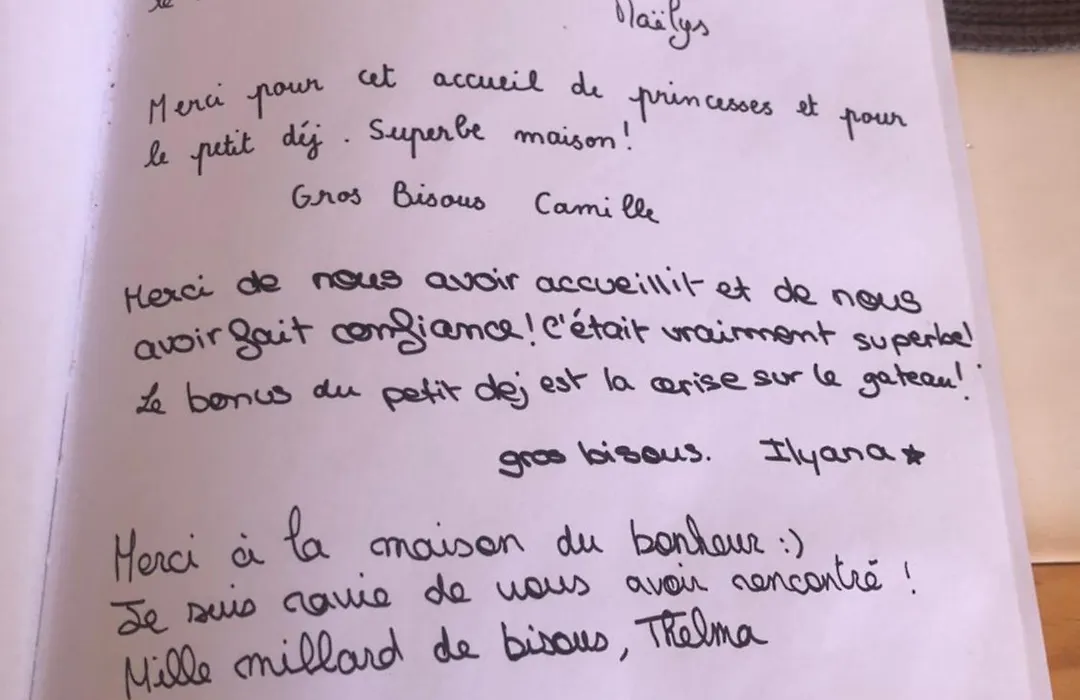 Maëlys
Merci pour cet accueil de princesses et pour
le petit déj. Superbe maison!
Gros Bisous Camille
Merci de nous avoir accueillit et de nous
avoir fait confiance! C'était vraiment superbe!
Le bonus du petit dej est la cerise sur le gateau!
gros bisous. Ilyana
Merci à la maison du bonheur :)
Je suis ravie de vous avoir rencontré !
Mille millard de bisous, Thelma